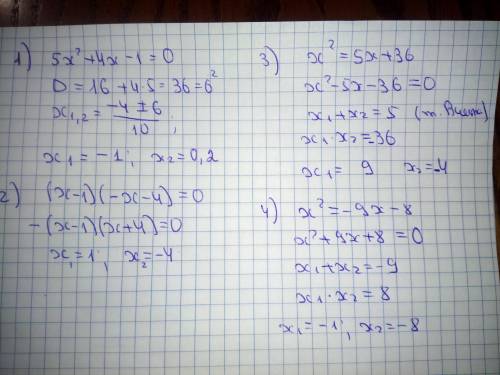 1) 5x²+4x-1=0
D=16+4·5=36=6²
x₁,₂=(-4±6)/10;
x₁=-1; x₂=0,2
2) (x-1)(-x-4)=0
-(x-1)(x+4)=0
x₁=1; x₂=-4
3) x²=5x+36
x²-5x-36=0
x₁+x₂=5 (т. Виета)
x₁·x₂=-36
x₁=9 x₂=-4
4) x²=-9x-8
x²+9x+8=0
x₁+x₂=-9
x₁·x₂=8
x₁=-1; x₂=-8